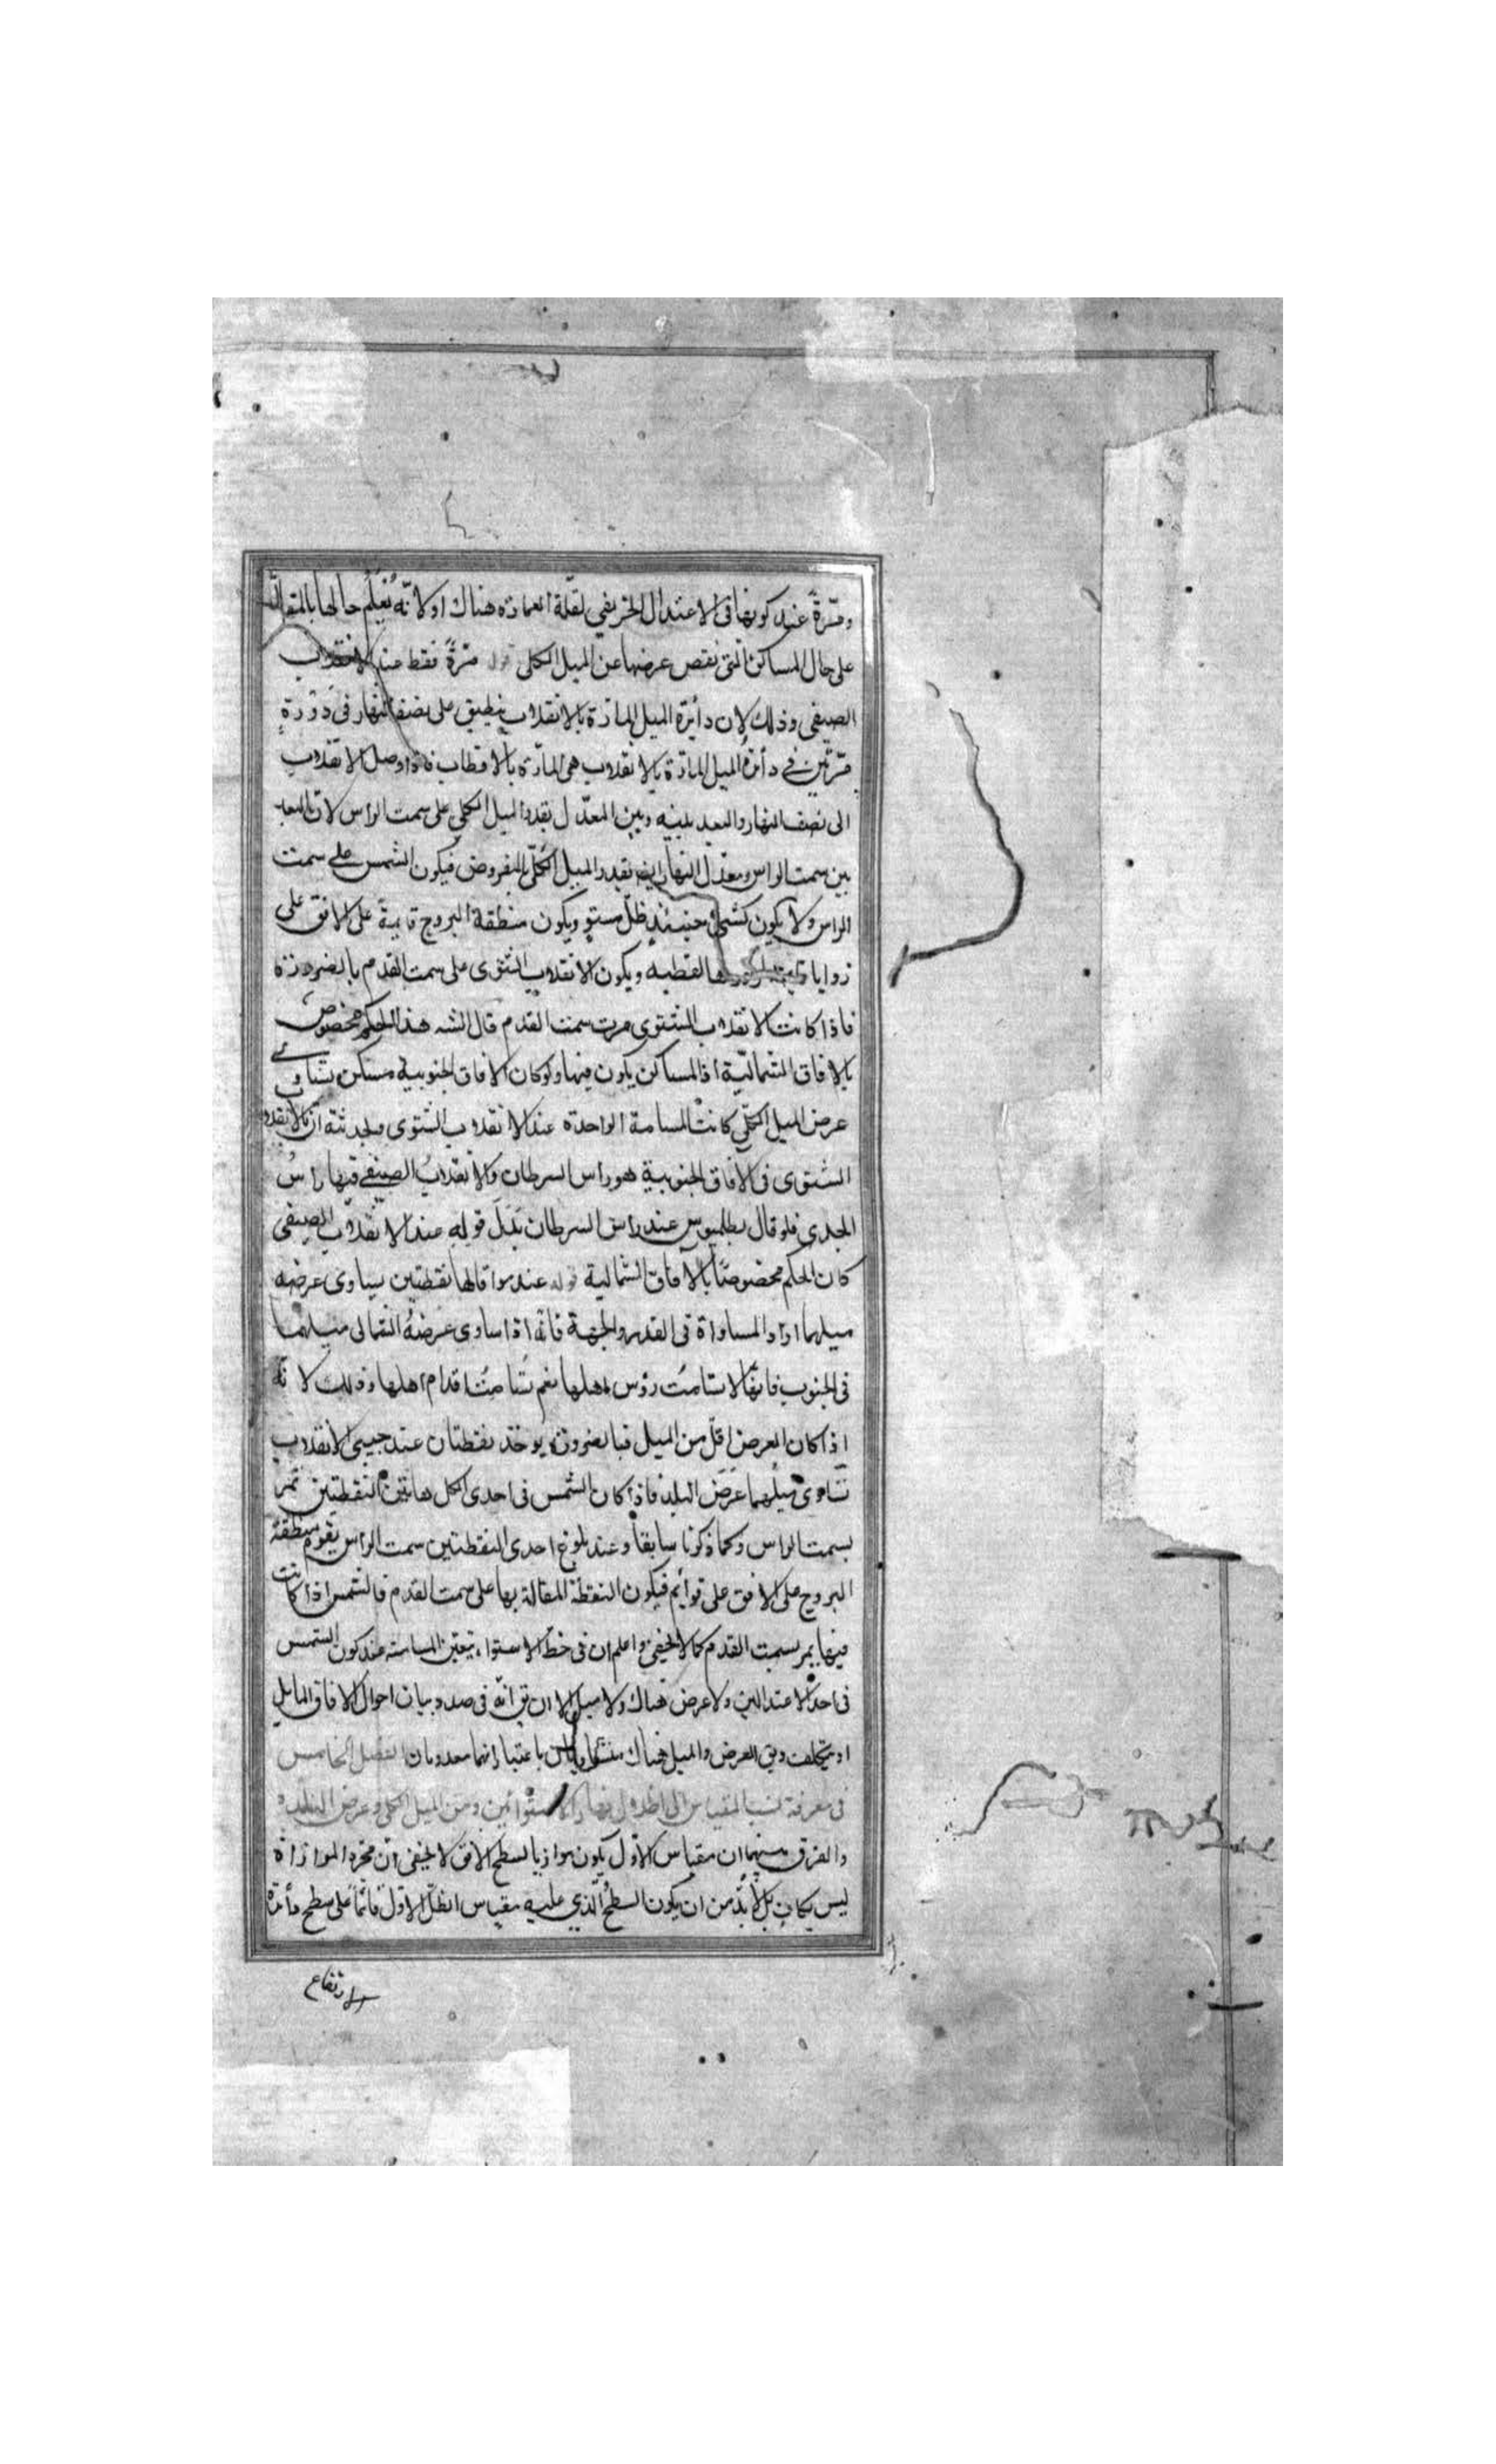 ومرّةً عند كونها فى الاعتدال الخريفي لقلّة العمارة هناك او لانّه يُعلَم حالها بالمقا
على حال المساكن التى ينقص عرضها عن الميل الكلى قوله مرّةً فقط عند الانقلاب
الصيفى وذلك لان دائرة الميل المارّة بالانقلاب ينطبق على نصف النهار فى دَوْرَةٍ
مرّتين فى دائرة الميل المارّة بالانقلاب هى المارّة بالاقطاب فاذا وصل الانقلاب
الى نصف النهار والبعد بينه وبين المعدّل بقدر الميل الكلي على سمت الراس لانّ البعد
بين سمت الراس ومعدّل النهار ايضا بقدر الميل الكلّي المفروض فيكون الشمس على سمت
الراس ولا يكون لشئ حينئذٍ ظلّ مستوٍ ويكون منطقة البروج قايمة على الافق على
زوايا القطبه ويكون الانقلاب الشتوى على سمت القدم بالضرورة
فاذا كانت الانقلاب الشتوى مرت سمت القدم قال الشه هذا الحكم مخصوص
بالافاق الشماليّة اذ المساكن يكون فيها ولو كان الافاق الجنوبية مساكن يساوى
عرض الميل الكلّي كانت المسامتة الواحدة عند الانقلاب الشتوى انّ الانقلاب
الشتوى فى الآفاق الجنوبية هو راس السرطان والانقلاب الصيفى فيها راسُ
الجدى فلو قال بطلميوس عند راس السرطان بَدَلَ قوله عند الانقلاب الصيفى
كان الحكم مخصوصًا بالآفاق الشمالية قوله عند موافاتها نقطتين يساوى عرضه
ميلهما اراد المساواة فى القدر والجهة فانّه اذا ساوى عرضهُ الشمالى ميلهما
فى الجنوب فانّها لا تسامت رؤس اهلها نعم تُسامِتُ اقدام اهلها وذلك لانّه
اذا كان العرض اقلّ من الميل فبالضرورة يوخذ نقطتان عند جنبتى الانقلاب
تساوى ميلهما عَرَضَ البلد فاذا كان الشمس فى احدى هاتين النقطتين تمر
بسمت الراس وكما ذكرنا سابقاً وعند بلوغ احدى النقطتين سمت الراس يقوم منطقة
البروج على الافق على قوائم فيكون النقطة المقابلة بها على سمت القدم فالشمس اذا كانت
فيها يمر بسمت القدم كما لا يخفى واعلم ان فى خطّ الاستواء يتعيّن المسامتة عند كون الشمس
فى احد الاعتدالين ولا عرض هناك ولا ميل الا ان يق انّه فى صدد بيان احوال الافاق المايل
او يتكلّف ويق العرض والميل هناك باعتبار انهما معدومان الفصل الخامس
فى معرفة نسب المقياس الى اظلال نهار الاستوائين ومن الميل الكلى وعرض البلد
والفرق بينهما ان مقياس الاوّل يكون موازيا لسطح الافق لا يخفى ان مجرّد الموازاة
ليس بكافٍ بل لا بدّ من ان يكون السطحُ الّذي عليه مقياس الظلّ الاوّل قائماً على سطح دائرة
الارتفاع